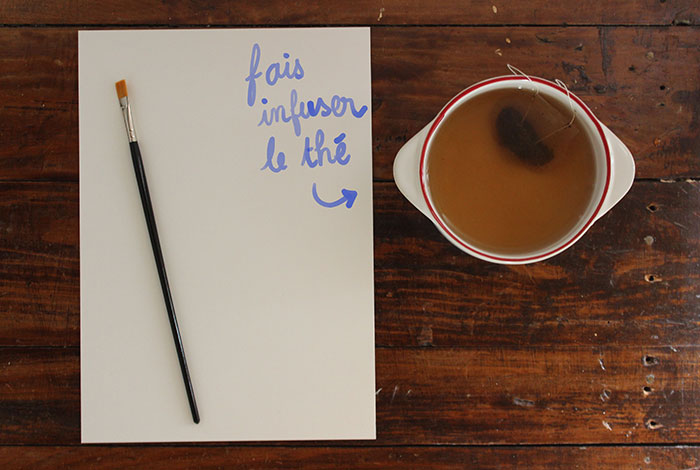 fais
infuser
le thé